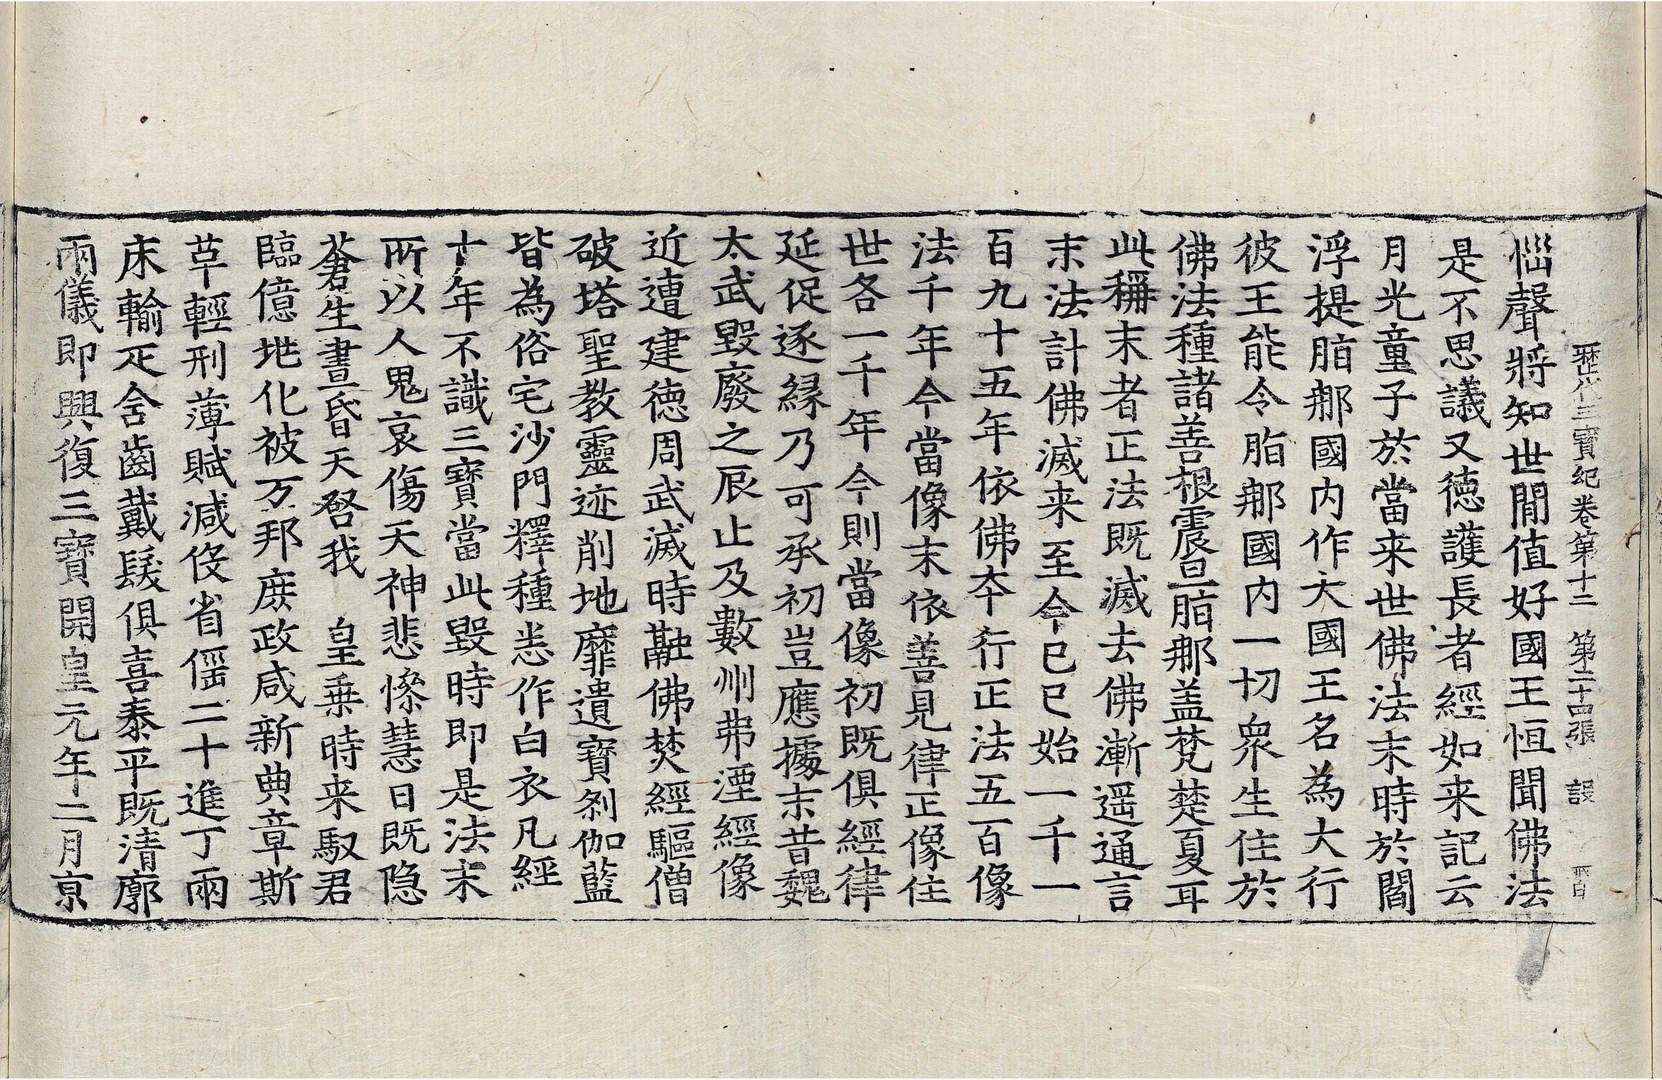 歷代三寶紀卷第十二 第二十四張 設
惱聲將知世間值好國王恒聞佛法
是不思議又德護長者經如来記云
月光童子於當来世佛法末時於閻
浮提脂那國内作大國王名為大行
彼王能令脂那國内一切衆生住於
佛法種諸善根震旦脂那盖梵楚夏耳
此稱末者正法既滅去佛漸遥通言
末法計佛滅来至今已巳始一千一
百九十五年依佛夲行正法五百像
法千年今當像末依善見律正像住
世各一千年今則當像初既俱經律
延促逐緣乃可承初豈應據末昔魏
太武毀廢之辰止及數州弗湮經像
近遭建德周武滅時融佛焚經驅僧
破塔聖教靈迹削地靡遺寶刹伽藍
皆為俗宅沙門釋種悉作白衣凡經
十年不識三寶當此毀時即是法末
所以人鬼哀傷天神悲慘慧日既隐
蒼生晝昏天啓我 皇乗時来馭君
臨億地化被万邦庶政咸新典章斯
草輕刑薄賦減伇省徭二十進丁兩
床輸疋含齒戴髮俱喜泰平既清廓
兩儀即興復三寶開皇元年二月京